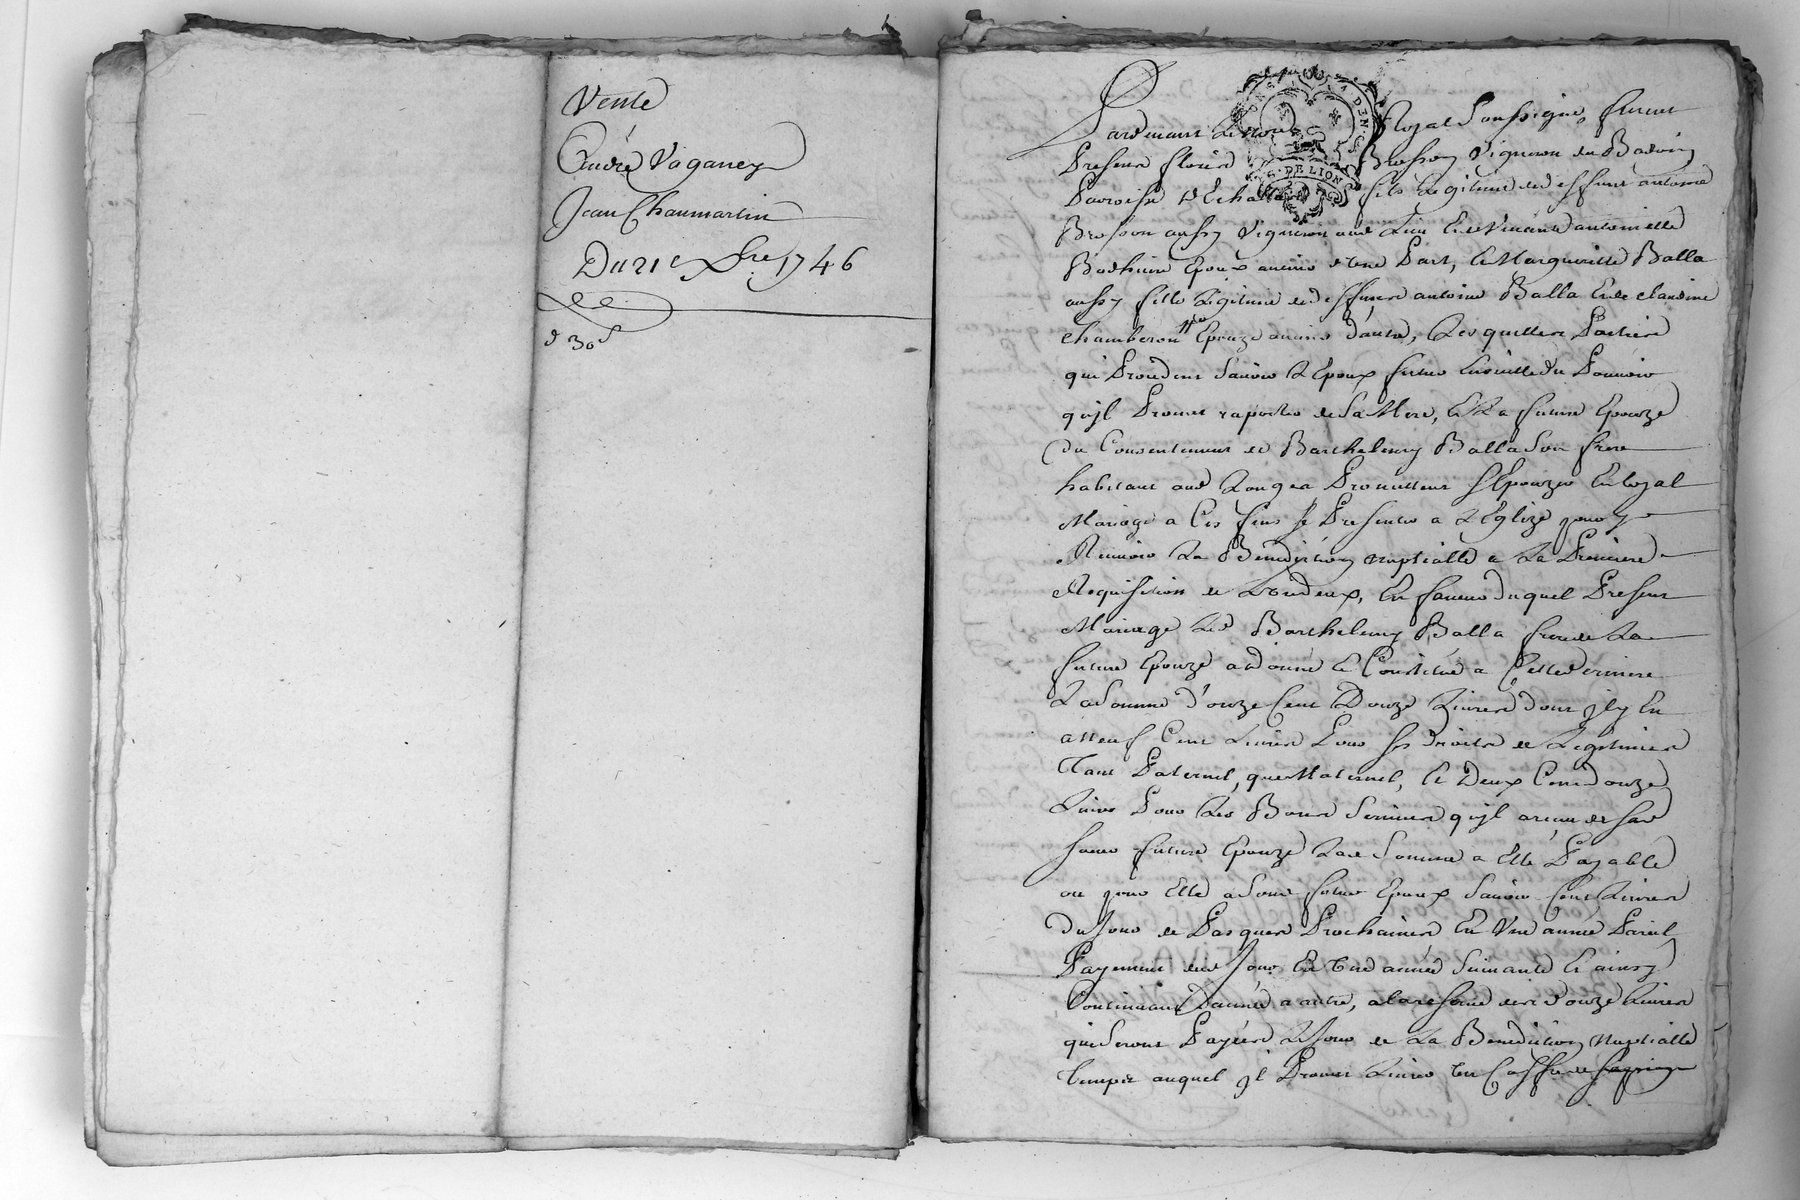 Vente
André Vaganey
Jean Chaumartin
Du 21e Xbre 1746
d 30 s
GEN. DE LION
Pardevant Le No.re Royal Soussigné, furent
Present fleury Brosson Vigneron du Badoin
Parroisse d'Echalla fils Legitime de deffunt antoine
Brosson aussy Vigneron aud Lieu Et de Vivante antoinette
Bodhuin Epoux avenir d'une Part, Et Margueritte Balla
aussy fille Legitime de deffunt antoine Balla Et de claudine
chamberon Epouze avenir d'autre, Lesquelles Parties
qui Procedent Savoir L'Epoux futur Ensuitte du Pouvoir
qu'jl Promet raporter de Sa Mere, Et La future Epouze
du Consentement de Barthelemy Balla Son frere
habitant aud Longea Promettent S'Epouzer En Loyal
Mariage a Ces fins Se Presenter a L'Eglize pour y
Recevoir La Benediction nuptialle a La Premiere
Requisition de L'un deux, En faveur duquel Present
Mariage Led Barthelemy Balla frere de La
future Epouze a donné Et Constitué a Cette derniere
La Somme d'onze Cent Douze Livres dont jl y En
a Neuf Cent Livres Pour Ses droits de Legitimes
Tant Paternel, que Maternel, Et Deux Cent douze
Livres Pour Les Bons Services qu'jl a reçu de Sad
Soeur future Epouze Lad Somme a Elle Payable
ou pour Elle a Sond futur Epoux Savoir Cent Livres
du Jour de Pasques Prochaines En Une année Pareil
Payement dud Jour En Une année Suivante Et ainsy
Continuant D'année a autre, a la reserve des d'ouze Livres
qui Seront Payées Le Jour de La Benediction Nuptialle
temps auquel jl Promet Livrer Un Coffre de Sapin